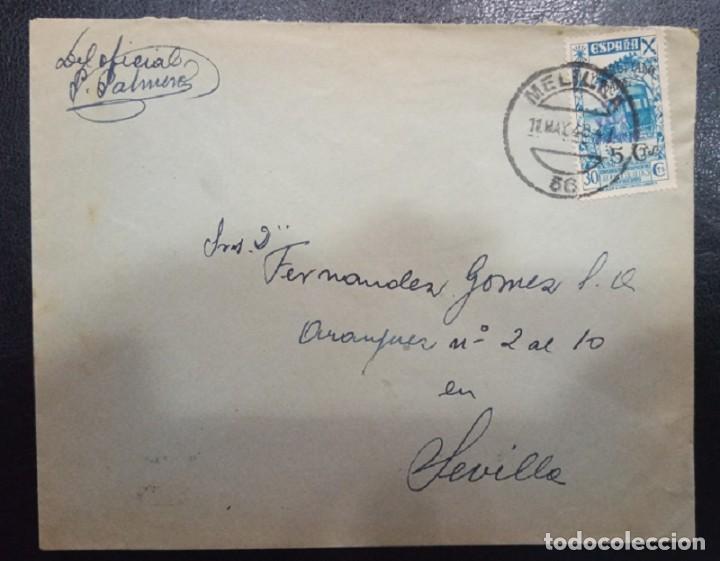 Del oficial
P. Palmero
ESPAÑA
MELILLA
11.MAY.48
56
5 Cts
30 Cts
Sres. Dⁿ
Fernandez Gomez S. A
Aranjuez nº 2 al 10
en
Sevilla
todocoleccion